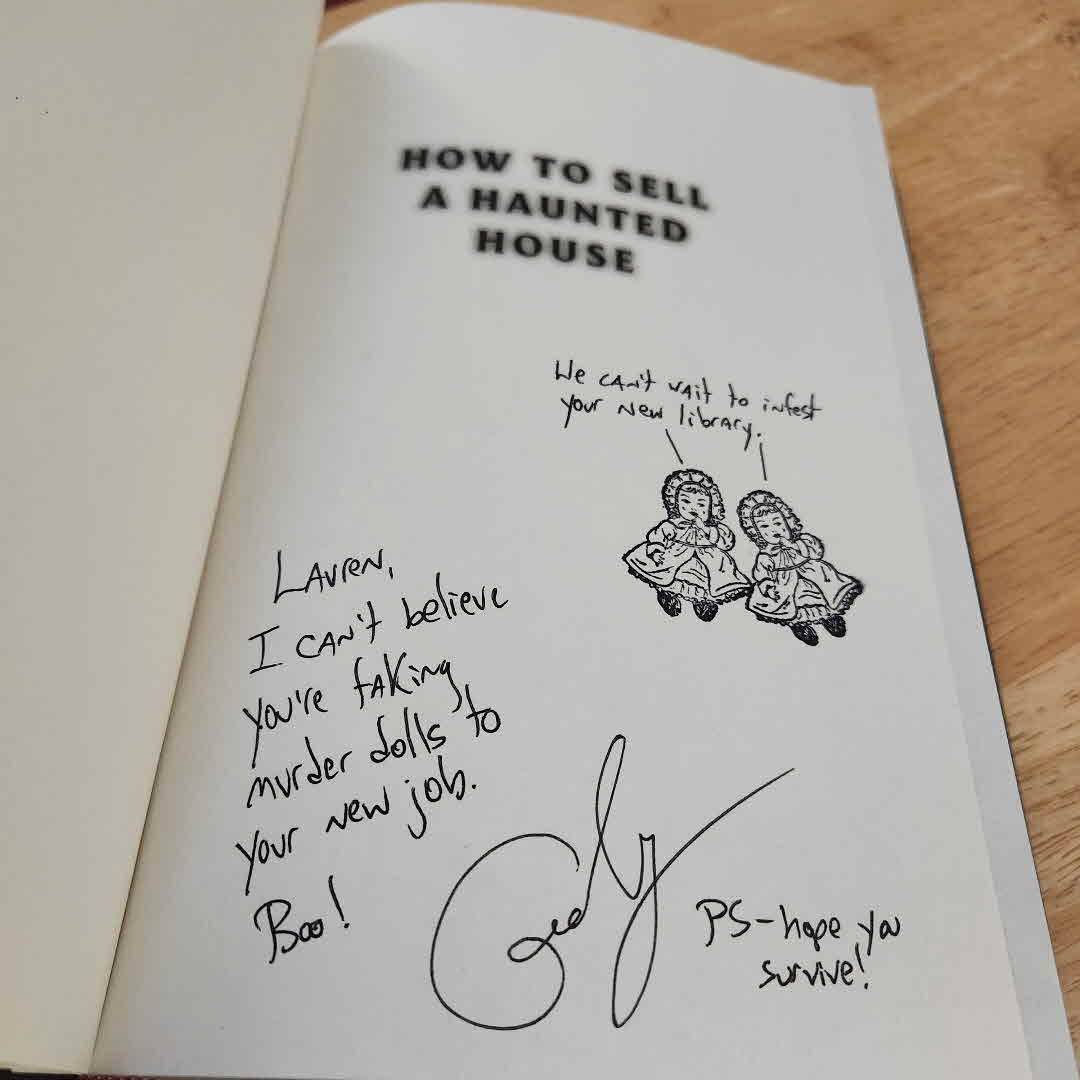 HOW TO SELL
A HAUNTED
HOUSE
We can't wait to infest
your new library.
Lauren,
I can't believe
you're taking
murder dolls to
your new job.
Boo!
PS-hope you
survive!